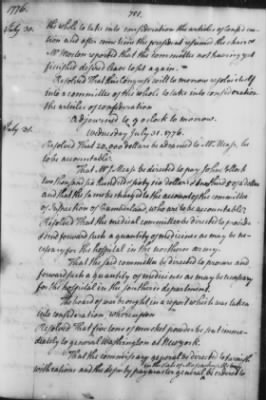 1776.
July 30.
the whole to take into consideration the articles of confedera
tion and after some time the president resumed the chair &
Mr. Morton reported that the committee not having yet
finished desired leave to sit again.
Resolved That this Congress will to morrow resolve itself
into a committee of the whole to take into consideration
the articles of confederation
Adjourned to 9 o clock to morrow.
Wednesday July 31. 1776.
July 31.
Resolved That 20,000 dollars be advanced to Mr. Mease, he
to be accountable.
That Mr. J. Mease be directed to pay John
two thousand six hundred & sixty six dollars & of a dollar
and that the same be charged to the account of the committee
of inspection of Cumberland, who are to be accountable.
Resolved That the medical committee be directed to provide
and forward such a quantity of medicines as may be ne-
cessary for the hospital in the northern army.
That the said committee be directed to procure and
forward such a quantity of medicines as may be necessary
for the hospital in the southern department.
The board of war brought in a report which was taken
into consideration whereupon
Resolved That five tons of musket powder be sent imme-
diately to general Washington at New york.
That the commissary general be directed to furnish
in the state of Massachusetts bay
with rations and the deputy paymaster general be ordered to